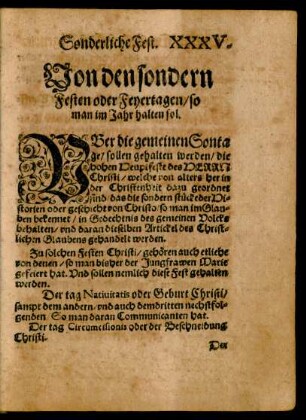 Sonderliche Fest. XXXV.
Von den sondern
Festen oder Feyertagen/so
man im Jahr halten sol.
VBer die gemeinen Sonta
ge/sollen gehalten werden/die
hohen Heuptfeste des HERRN
Christi/welche von alters her in
der Christenheit dazu geordnet
sind/das die sondern stück der Hi
storien oder geschicht von Christo/so man im Glau
ben bekennet/in Gedechtnis des gemeinen Volcks
behalten/vnd daran dieselben Artickel des Christ-
lichen Glaubens gehandelt werden.
Zu solchen Festen Christi/gehören auch etliche
von denen/so man bisher der Jungfrawen Marie
gefeiret hat. Vnd sollen nemlich diese Fest gehalten
werden.
Der tag Natiuitatis oder Geburt Christi/
sampt dem andern/vnd auch dem dritten nechstfol-
genden. So man daran Communicanten hat.
Der tag Circumcisionis oder der Beschneidung
Christi.
Der